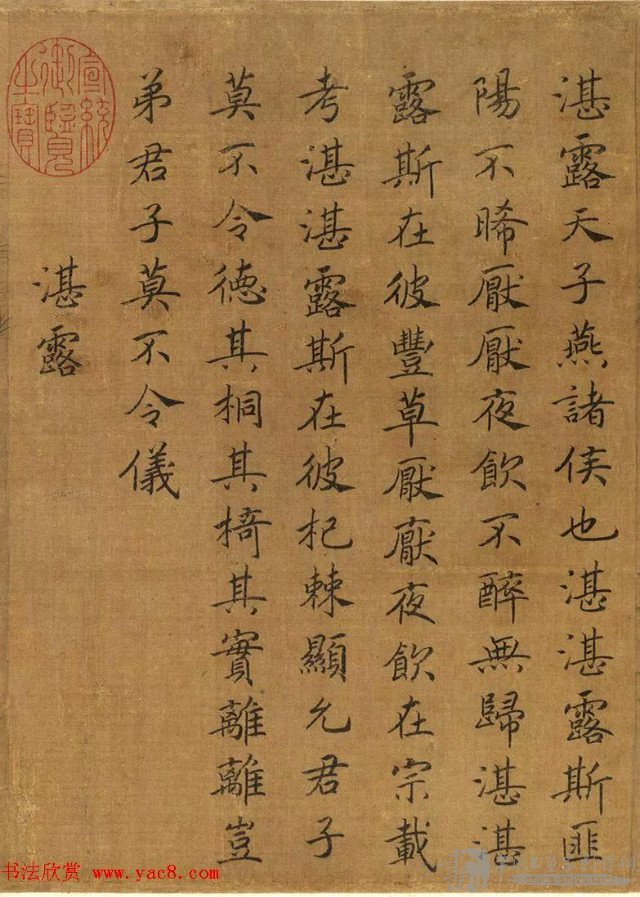 湛露天子燕諸侯也湛湛露斯匪
陽不晞厭厭夜飲不醉無歸湛湛
露斯在彼豐草厭厭夜飲在宗載
考湛湛露斯在彼杞棘顯允君子
莫不令德其桐其椅其實離離豈
弟君子莫不令儀
湛露
宣統御覽之寶
书法欣赏 www.yac8.com